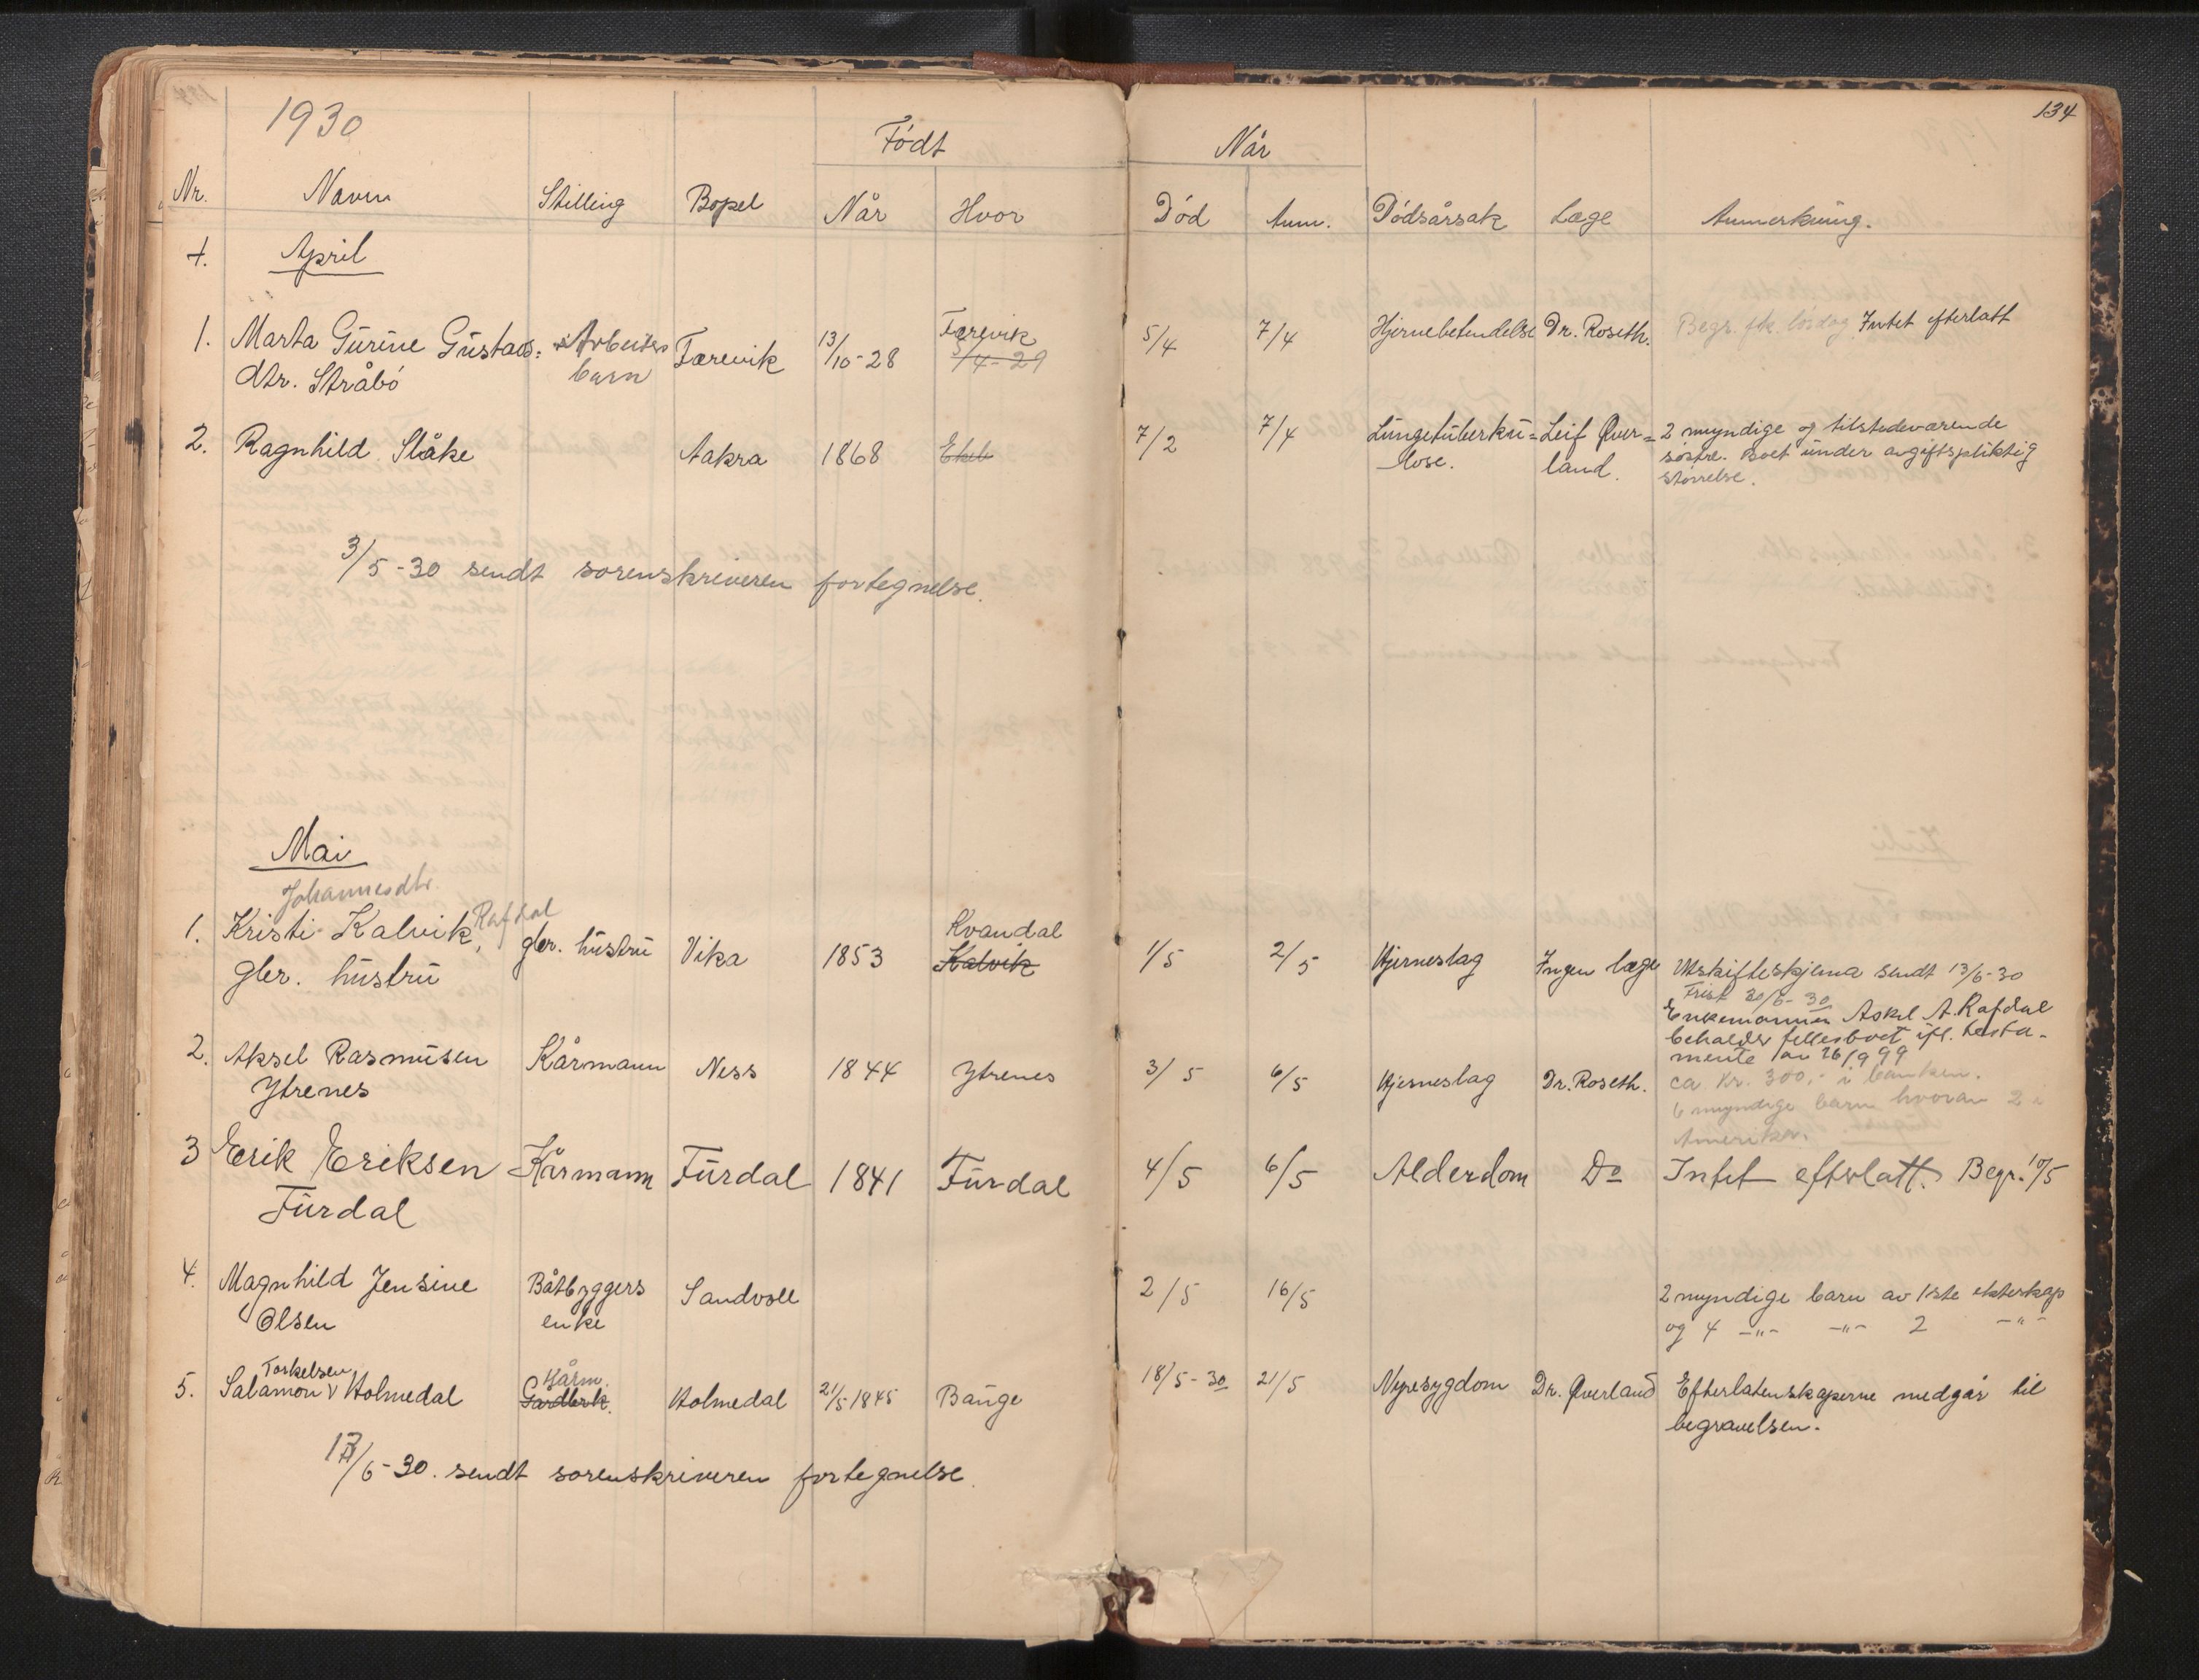 134
1930
Født
Når
Nr. Navn Stilling Bopel Når Hvor Død Anm. Dødsårsak Læge Anmerkning.
4. April
1. Marta Gurine Gustavs= Arbeiders Færevik 13/10-28 Færevik 5/4 7/4 Hjernebetendelse Dr. Roseth. Begr. fk. lørdag Intet efterlatt
dtr. Stråbø barn 5/4-29
2. Ragnhild Slåke Aakra 1868 7/2 7/4 Lungetuberku= Leif Øver= 2 myndige og tilstedeværende
lose. land. søstre. Boet under avgiftspliktig
størrelse.
3/5-30 sendt sorenskriveren fortegnelse.
Mai
Johannesdtr.
1. Kristi Kalvik, Rafdal gbr. hustru Vika 1853 Kvandal 1/5 2/5 Hjerneslag Ingen læge Utskifteskjema sendt 13/6-30
gbr. hustru Kalvik Frist 30/6-30
Enkemannen Askel A. Rafdal
beholder fellesboet ifl. testa-
mente av 26/9 99
2. Aksel Rasmusen Kårmann Ness 1844 Ytrenes 3/5 6/5 Hjerneslag Dr. Roseth. ca. kr. 300,- i banken.
Ytrenes 6 myndige barn hvorav 2 i
Amerika.
3 Erik Eriksen Kårmann Furdal 1841 Furdal 4/5 6/5 Alderdom Do Intet efterlatt. Begr. 10/5
Furdal
4. Magnhild Jensine Båtbyggers Sandvoll 2/5 16/5 2 myndige barn av 1ste ekteskap
Olsen enke og 4 -"- -"- 2 -"-
Torkelsen Kårm.
5. Salamon v Holmedal Gårdbrk. Holmedal 21/5-1845 Bauge 18/5-30 21/5 Nyresygdom Dr. Øverland Efterlatenskaperne medgår til
begravelsen.
13/6-30. sendt sorenskriveren fortegnelse.